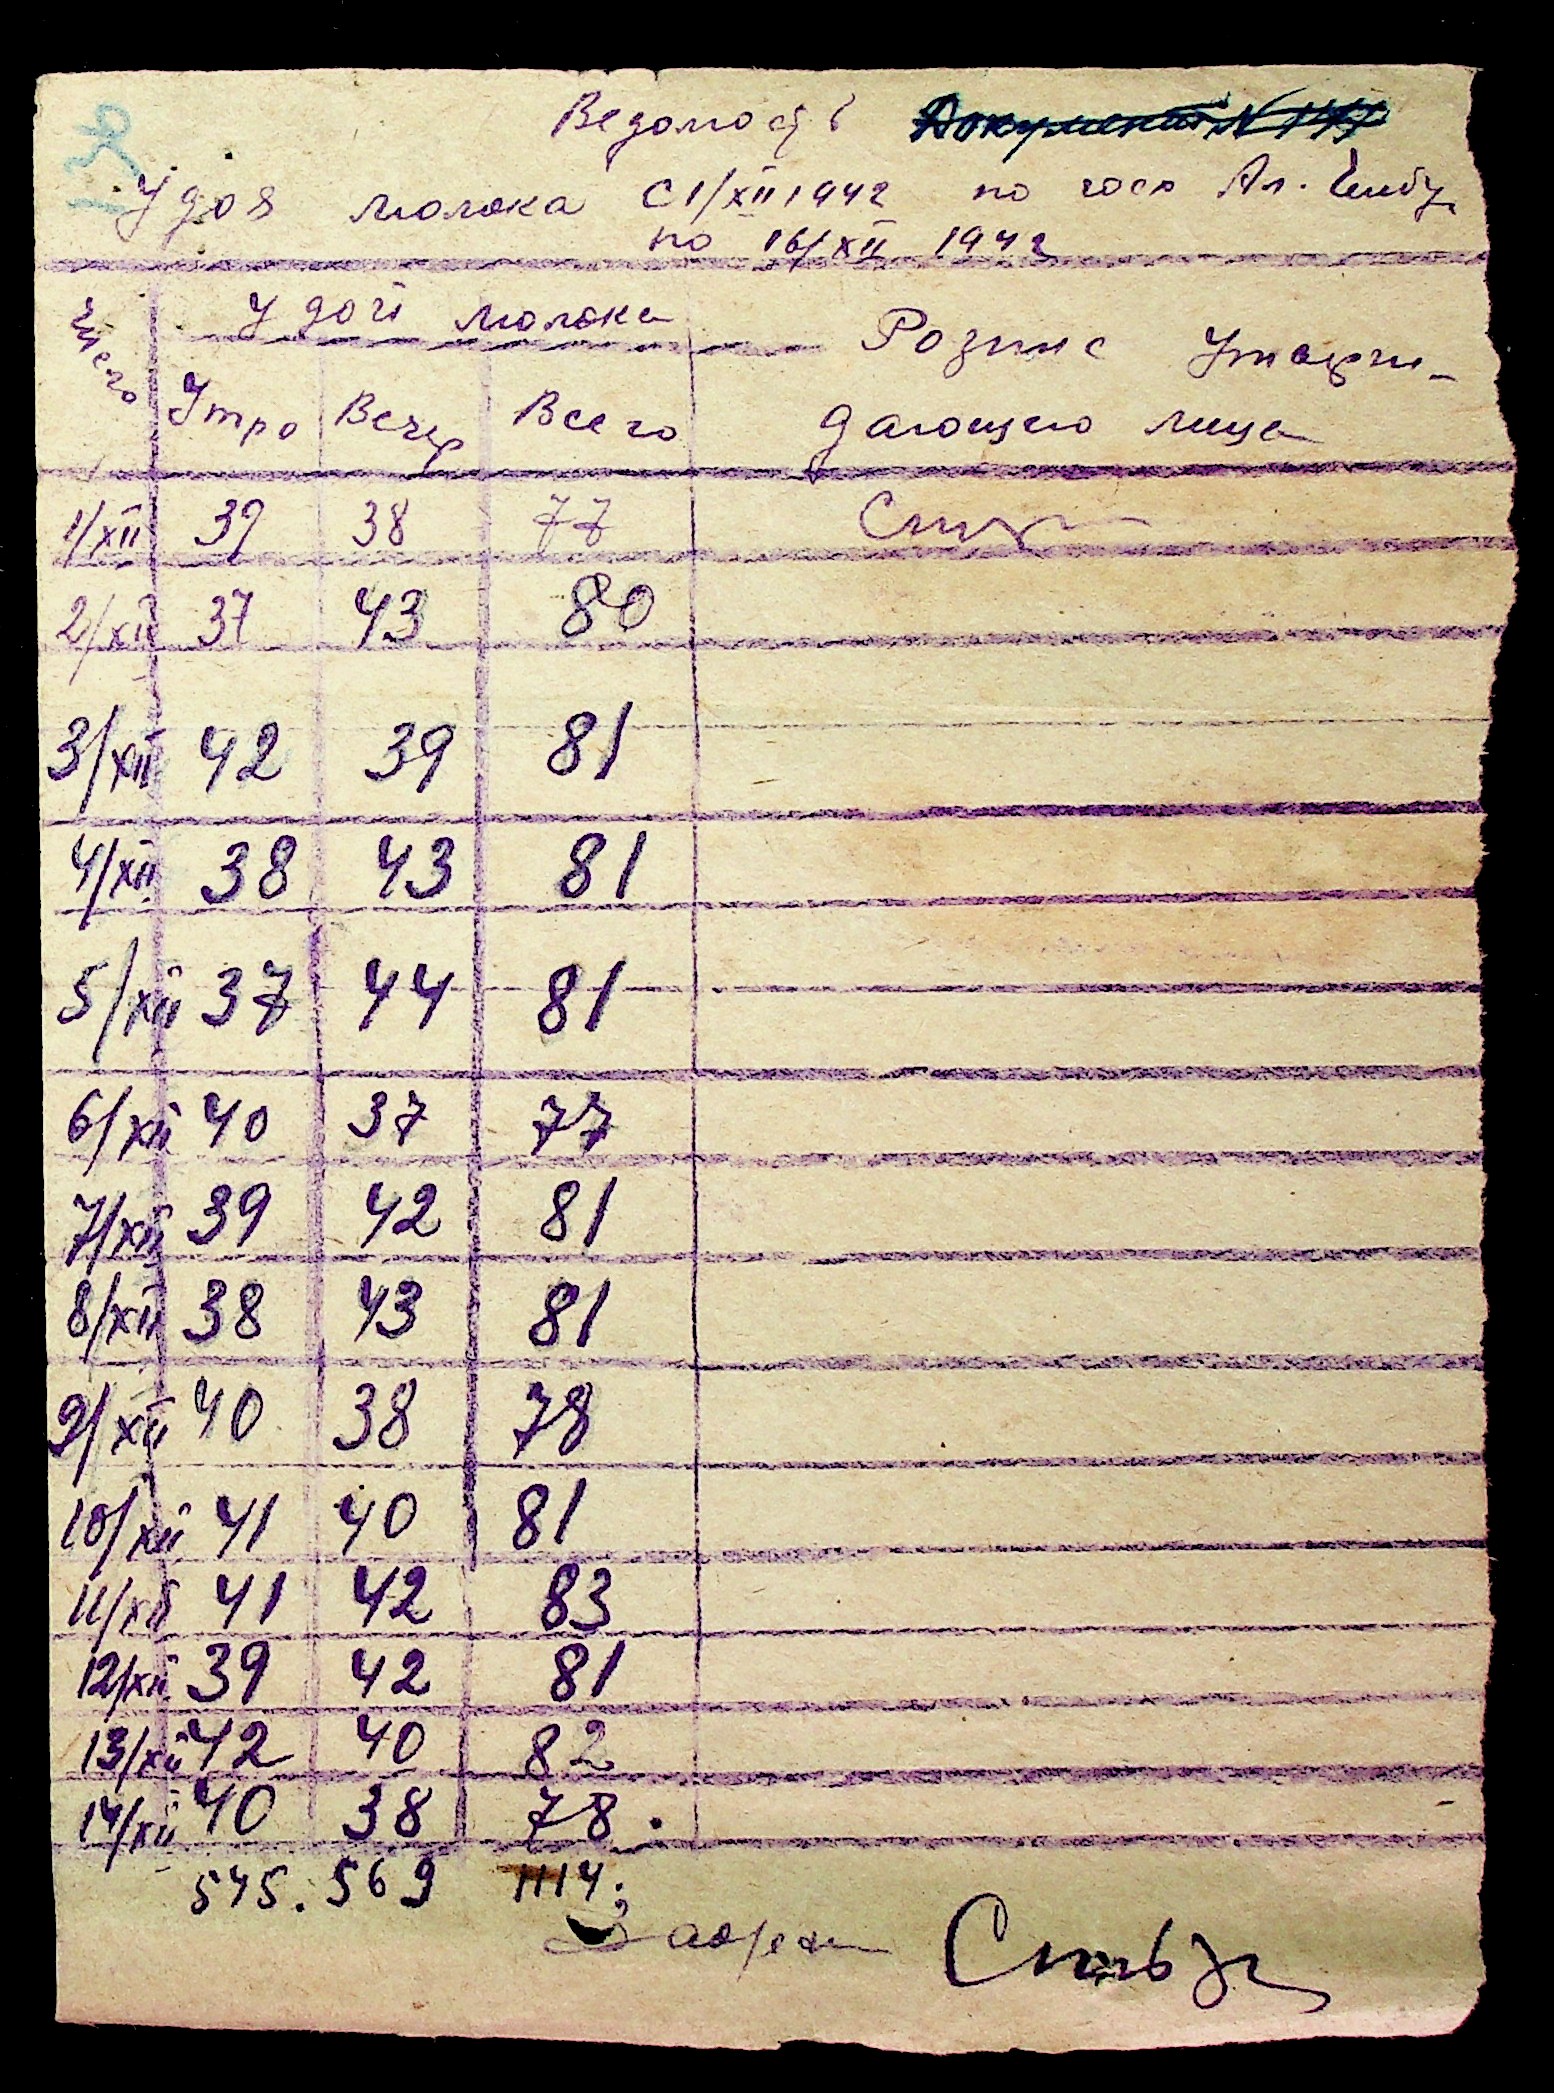 Ведомость Документ N
Удоя молока С 1/XII 1942 по госп Ал.
по 16/XII 1942
Удой молока
Розпис
Утро Вечер Всего
дающего лица
1/XII 39 38 77
2/XII 37 43 80
3/XII 42 39 81
4/XII 38 43 81
5/XII 37 44 81
6/XII 40 37 77
7/XII 39 42 81
8/XII 38 43 81
9/XII 40 38 78
10/XII 41 40 81
11/XII 41 42 83
12/XII 39 42 81
13/XII 42 40 82
14/XII 40 38 78.
545. 569 1114.